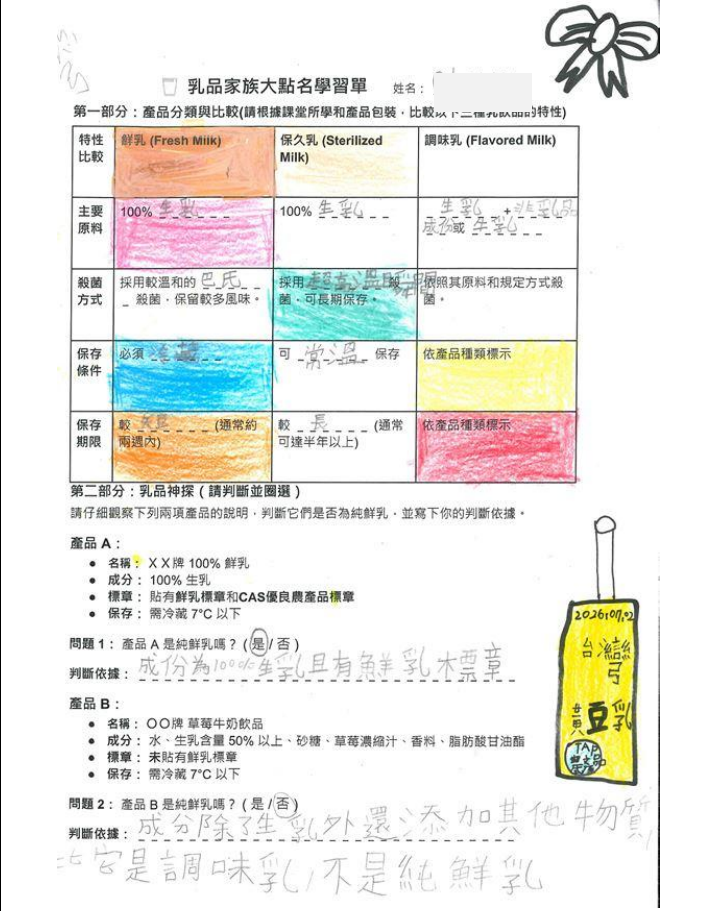 乳品家族大點名學習單 姓名：
第一部分：產品分類與比較(請根據課堂所學和產品包裝，比較以下三種乳飲品的特性)
特性比較
鮮乳 (Fresh Milk)
保久乳 (Sterilized
Milk)
調味乳 (Flavored Milk)
主要原料
100% 生乳
100% 生乳
生乳 + 添乳品
成份或 生乳
殺菌方式
採用較溫和的 巴氏
殺菌，保留較多風味。
採用 超高溫瞬間 殺
菌，可長期保存。
依照其原料和規定方式殺
菌。
保存條件
必須 冷藏
可 常溫 保存
依產品種類標示
保存期限
較 短 (通常約
兩週內)
較 長 (通常
可達半年以上)
依產品種類標示
第二部分：乳品神探（請判斷並圈選）
請仔細觀察下列兩項產品的說明，判斷它們是否為純鮮乳，並寫下你的判斷依據。
產品 A：
● 名稱： X X 牌 100% 鮮乳
● 成分： 100% 生乳
● 標章： 貼有鮮乳標章和CAS優良農產品標章
● 保存： 需冷藏 7°C 以下
問題 1： 產品 A 是純鮮乳嗎？ ( 是 / 否 )
判斷依據： 成份為100%生乳且有鮮乳標章
產品 B：
● 名稱： 〇〇牌 草莓牛奶飲品
● 成分： 水、生乳含量 50% 以上、砂糖、草莓濃縮汁、香料、脂肪酸甘油酯
● 標章： 未貼有鮮乳標章
● 保存： 需冷藏 7°C 以下
問題 2： 產品 B 是純鮮乳嗎？ ( 是 / 否 )
判斷依據： 成分除了生乳外還添加其他物質
它是調味乳,不是純鮮乳
2026,07,02
台灣
黃豆乳
TAP
農產品